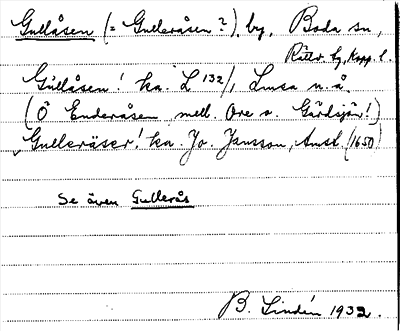 Gullåsen (= Gulleråsen?), by, Boda sn,
Rättv. tg, Kopp. l.
Gullåsen! ka. L 132/1, Linsa n.å.
(Ö Enderåsen mell. Ore o. Gårdsjö!)
Gulleråser! ka. Jo. Jansson, Amst (1650)
Se även Gullerås
B. Lindén 1932.